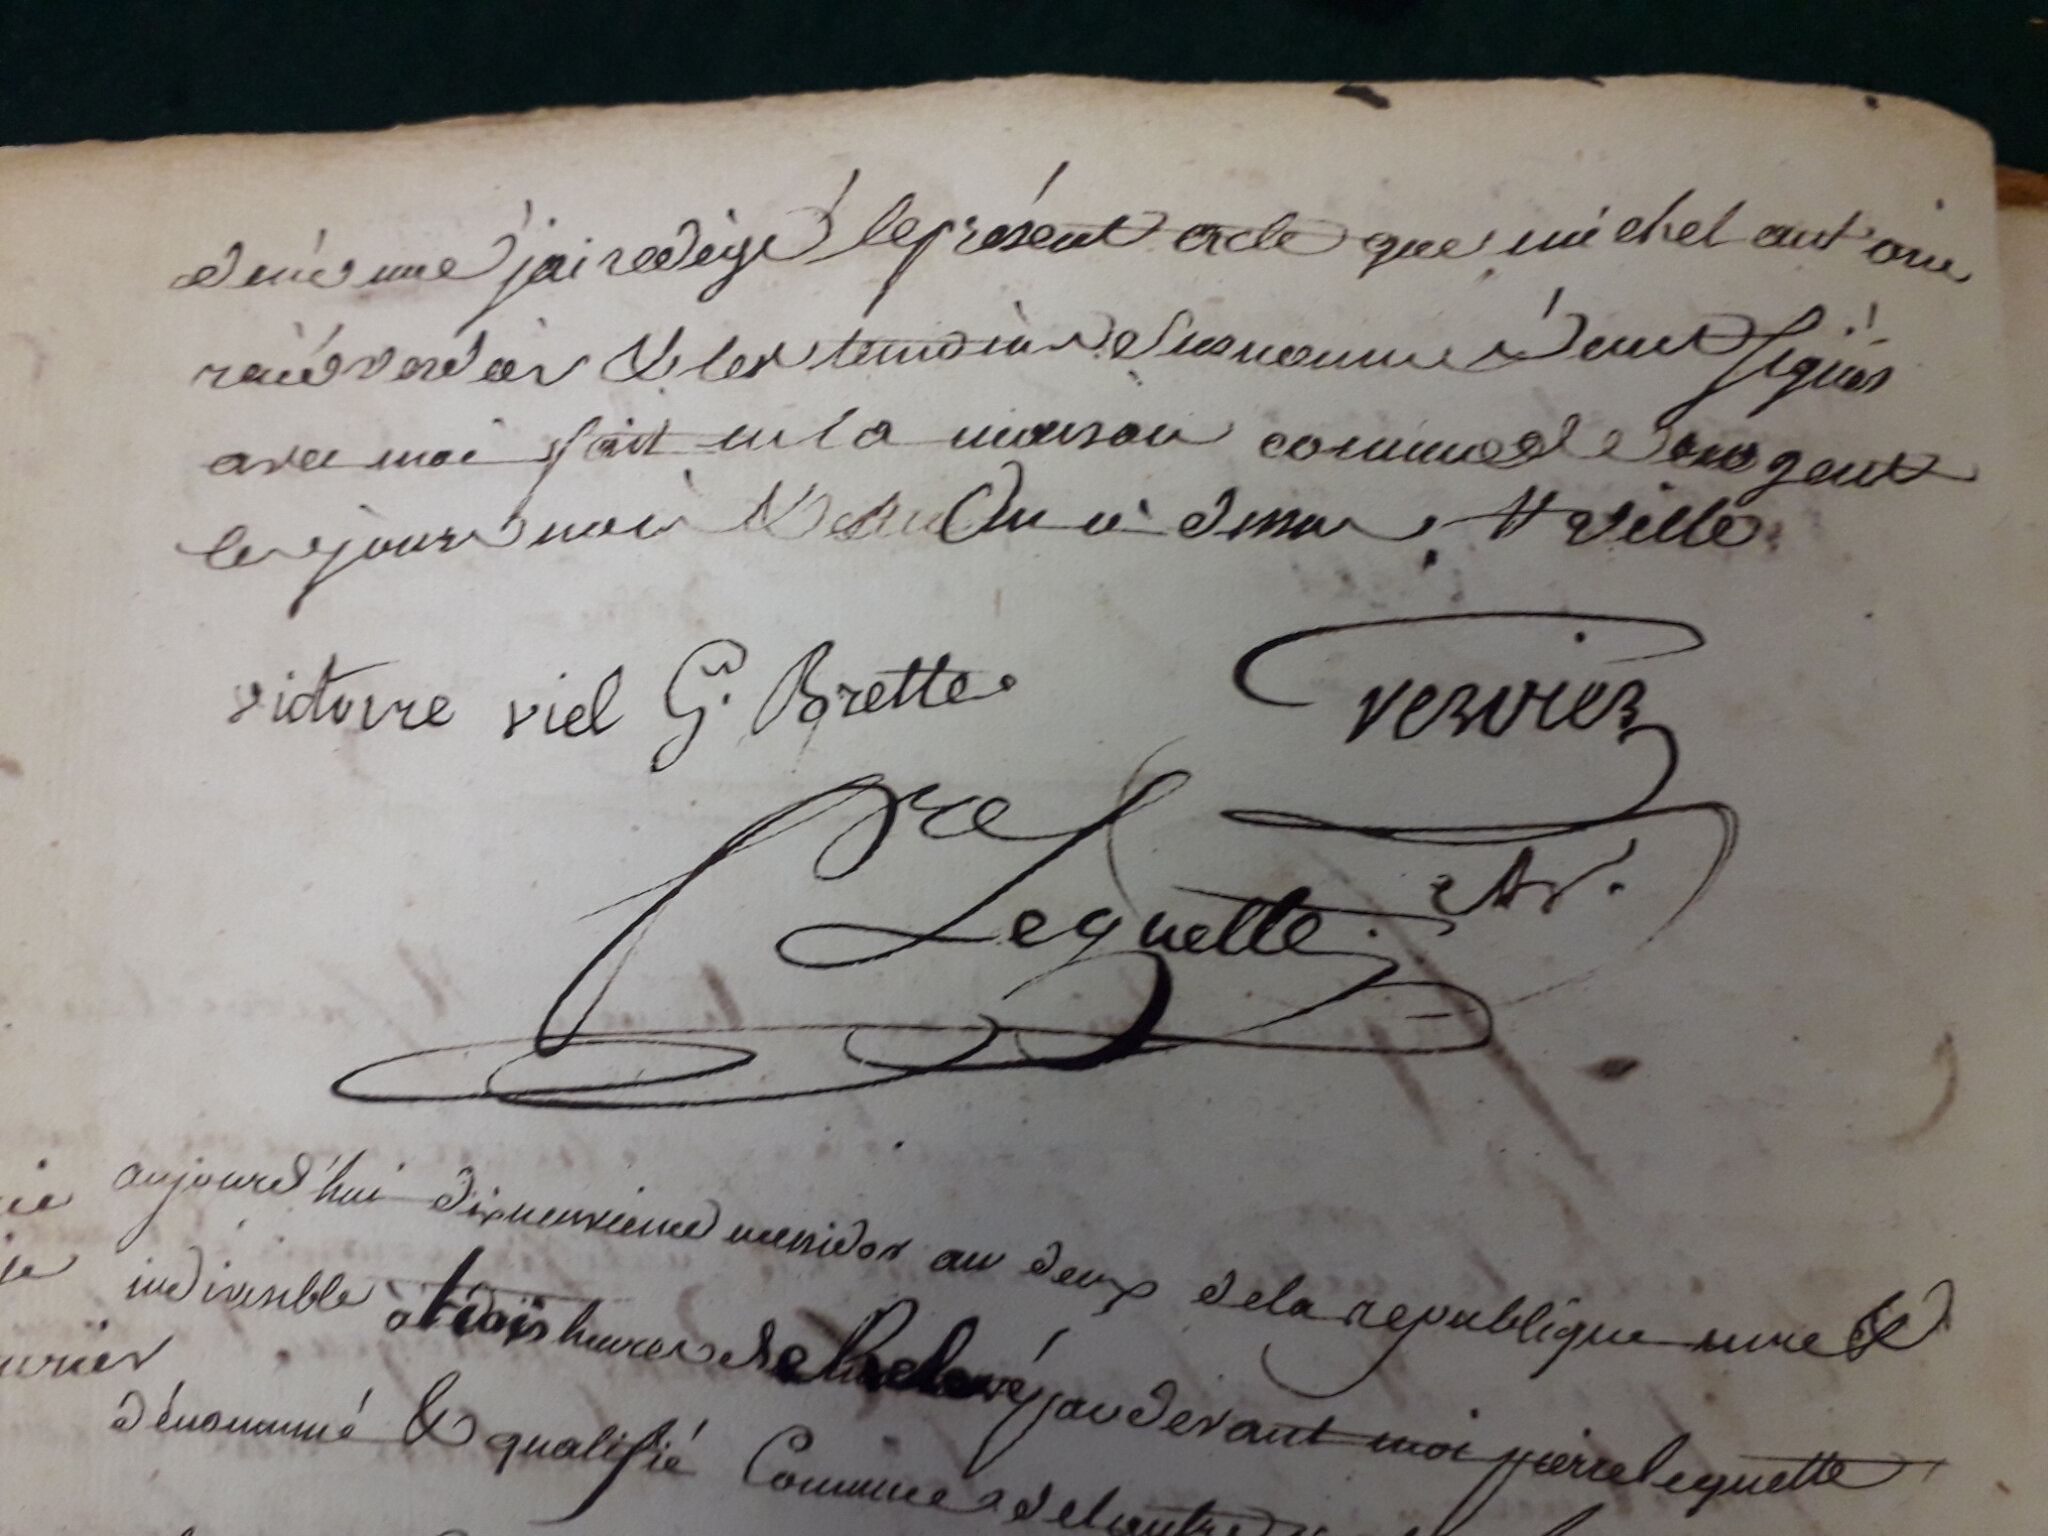 j'ai redigé le présent acte que michel antoine
& les temoins denommés ont signés
avec moi fait en la maison commune de nogent
les jours mois & an ci dessus, ville
victoire viel G. Brette
vervier
Pre
Lequette.
aujourd'hui dixneuvieme messidor an deux de la republique une &
indivisible à trois heures de Relevé pardevant moi pierre lequette
dénommé & qualifié Comme de l'autre